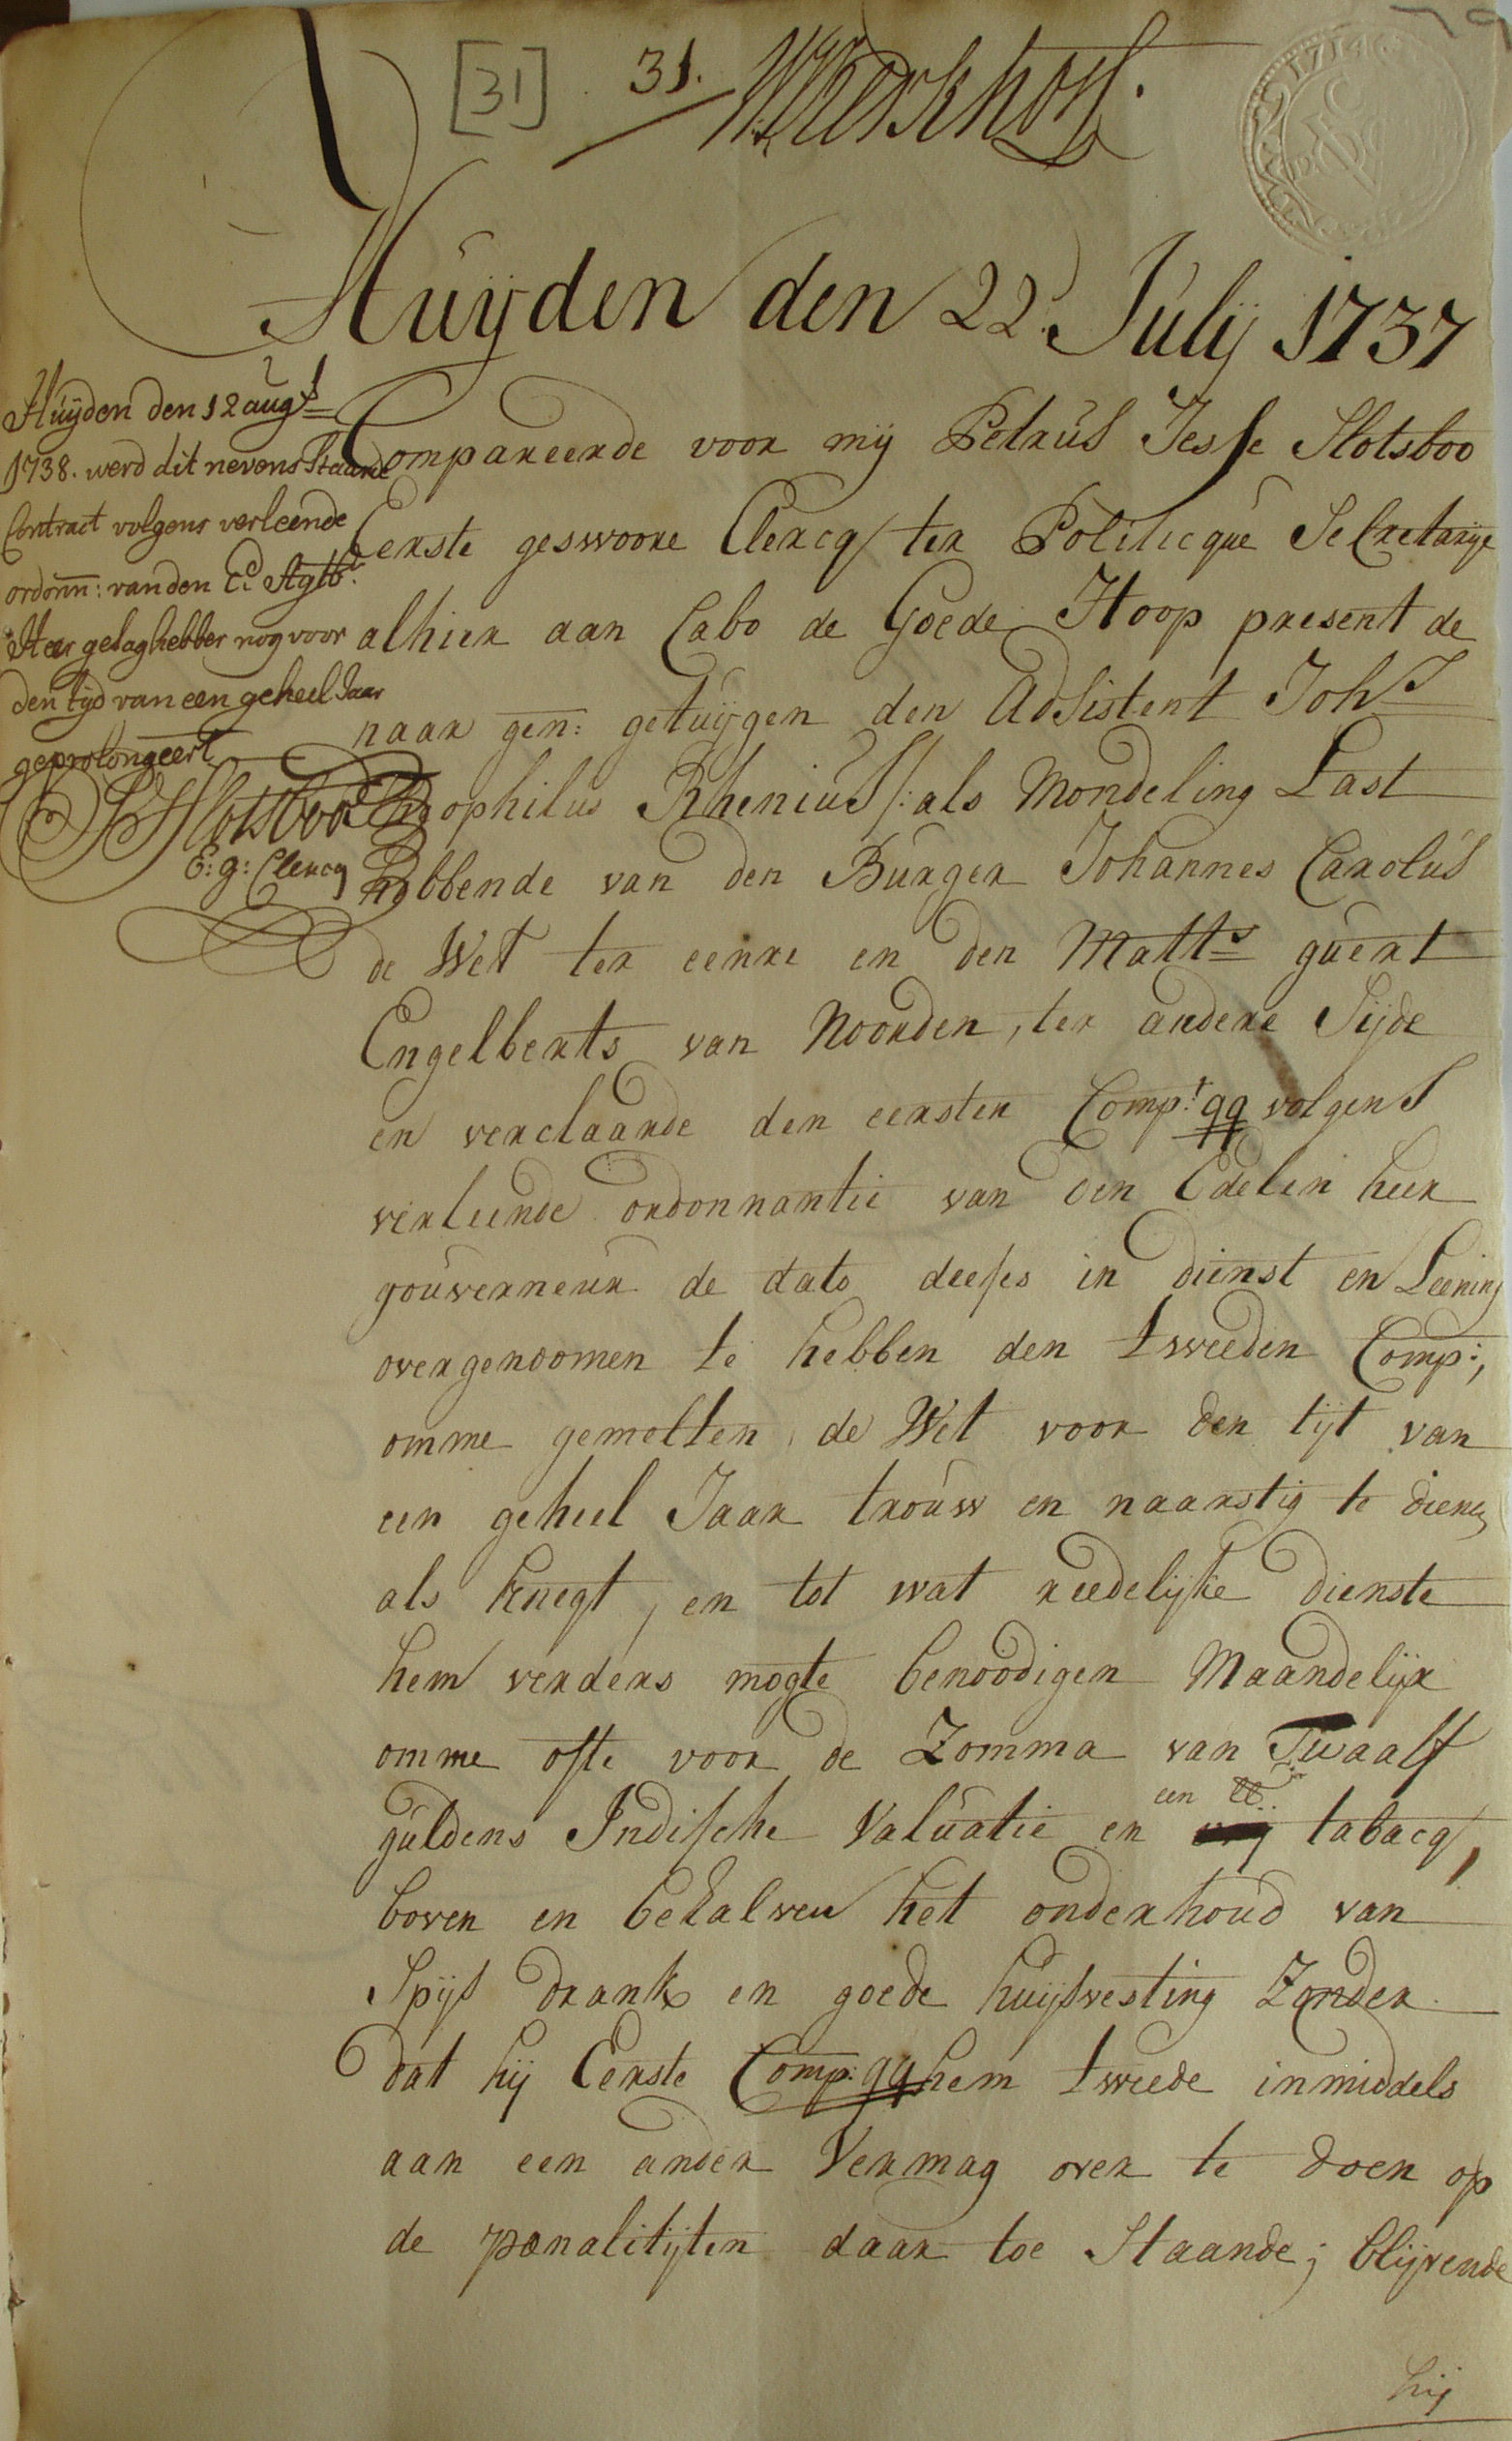 [31] 31. WKerkhoff.
1714
VOC
Huijden den 22. Julij 1737
Huijden den 12 augt
1738. werd dit nevens staande
Contract volgens verleende
ordonn: van den Ed. Agtb:
Heer gesaghebber nog voor
den tijd van een geheel Jaar
geprolongeert
Slotsboo
E: g: Clercq
Compareerde voor mij Petrus Jesse Slotsboo
Eerste geswoore Clercq ter Politicque Secretarije
alhier aan Cabo de Goede Hoop present de
naar gen: getuijgen den Adsistent Johs
Theophilus Rhenius /: als Mondeling Last
hebbende van den Burger Johannes Carolus
de Wet ter eenre en den Matts guert
Engelberts van Noorden, ter andere Sijde
en verclaarde den eersten Compt: qq volgens
verleende ordonnantie van den Edelen heer
gouverneur de dato deeses in dienst en Leening
overgenoomen te hebben den tweeden Comp:,
omme gemelten de Wet voor den tijt van
een geheel Jaar trouw en naarstig te dienen
als knegt, en tot wat reedelijke dienste
hem verders mogte benoodigen Maandelijx
omme ofte voor de Zomma van Twaalf
een lb.
guldens Indische Valuatie en tabacq,
boven en behalven het onderhoud van
Spijs drank en goede huijsvesting Zonder
dat hij Eerste Comp: qq hem tweede inmiddels
aan een ander Vermag over te doen op
de pœnalitijten daar toe Staande; blijvende
hij